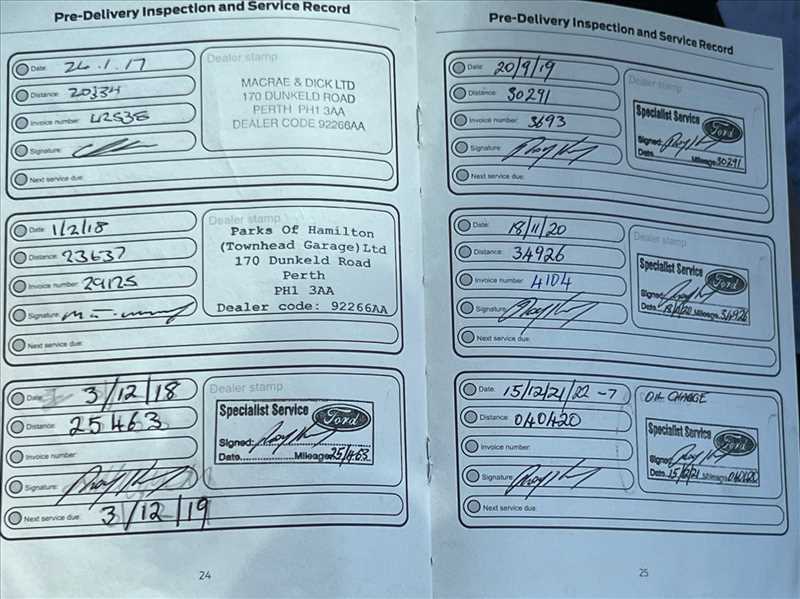 Pre-Delivery Inspection and Service Record
Date: 24.1.17
Distance: 20334
Invoice number: 42535
Signature:
Next service due:
Dealer stamp
MACRAE & DICK LTD
170 DUNKELD ROAD
PERTH PH1 3AA
DEALER CODE 92266AA
Date: 1/2/18
Distance: 23637
Invoice number: 29125
Signature:
Next service due:
Dealer stamp
Parks Of Hamilton
(Townhead Garage)Ltd
170 Dunkeld Road
Perth
PH1 3AA
Dealer code: 92266AA
Date: 3/12/18
Distance: 25463
Invoice number:
Signature:
Next service due: 3/12/19
Dealer stamp
Specialist Service Ford
Signed:
Date Mileage 25463
24
Pre-Delivery Inspection and Service Record
Date: 20/9/19
Distance: 30291
Invoice number: 3693
Signature:
Next service due:
Dealer stamp
Specialist Service
Ford
Signed:
Date Mileage 30291
Date: 18/11/20
Distance: 34926
Invoice number: 4104
Signature:
Next service due:
Dealer stamp
Specialist Service
Ford
Signed:
Date 18/11/20 Mileage 34926
Date: 15/12/21/22 -7
Distance: 040420
Invoice number:
Signature:
Next service due:
OIL CHANGE
Specialist Service
Ford
Signed:
Date 15/12/21 Mileage 040420
25